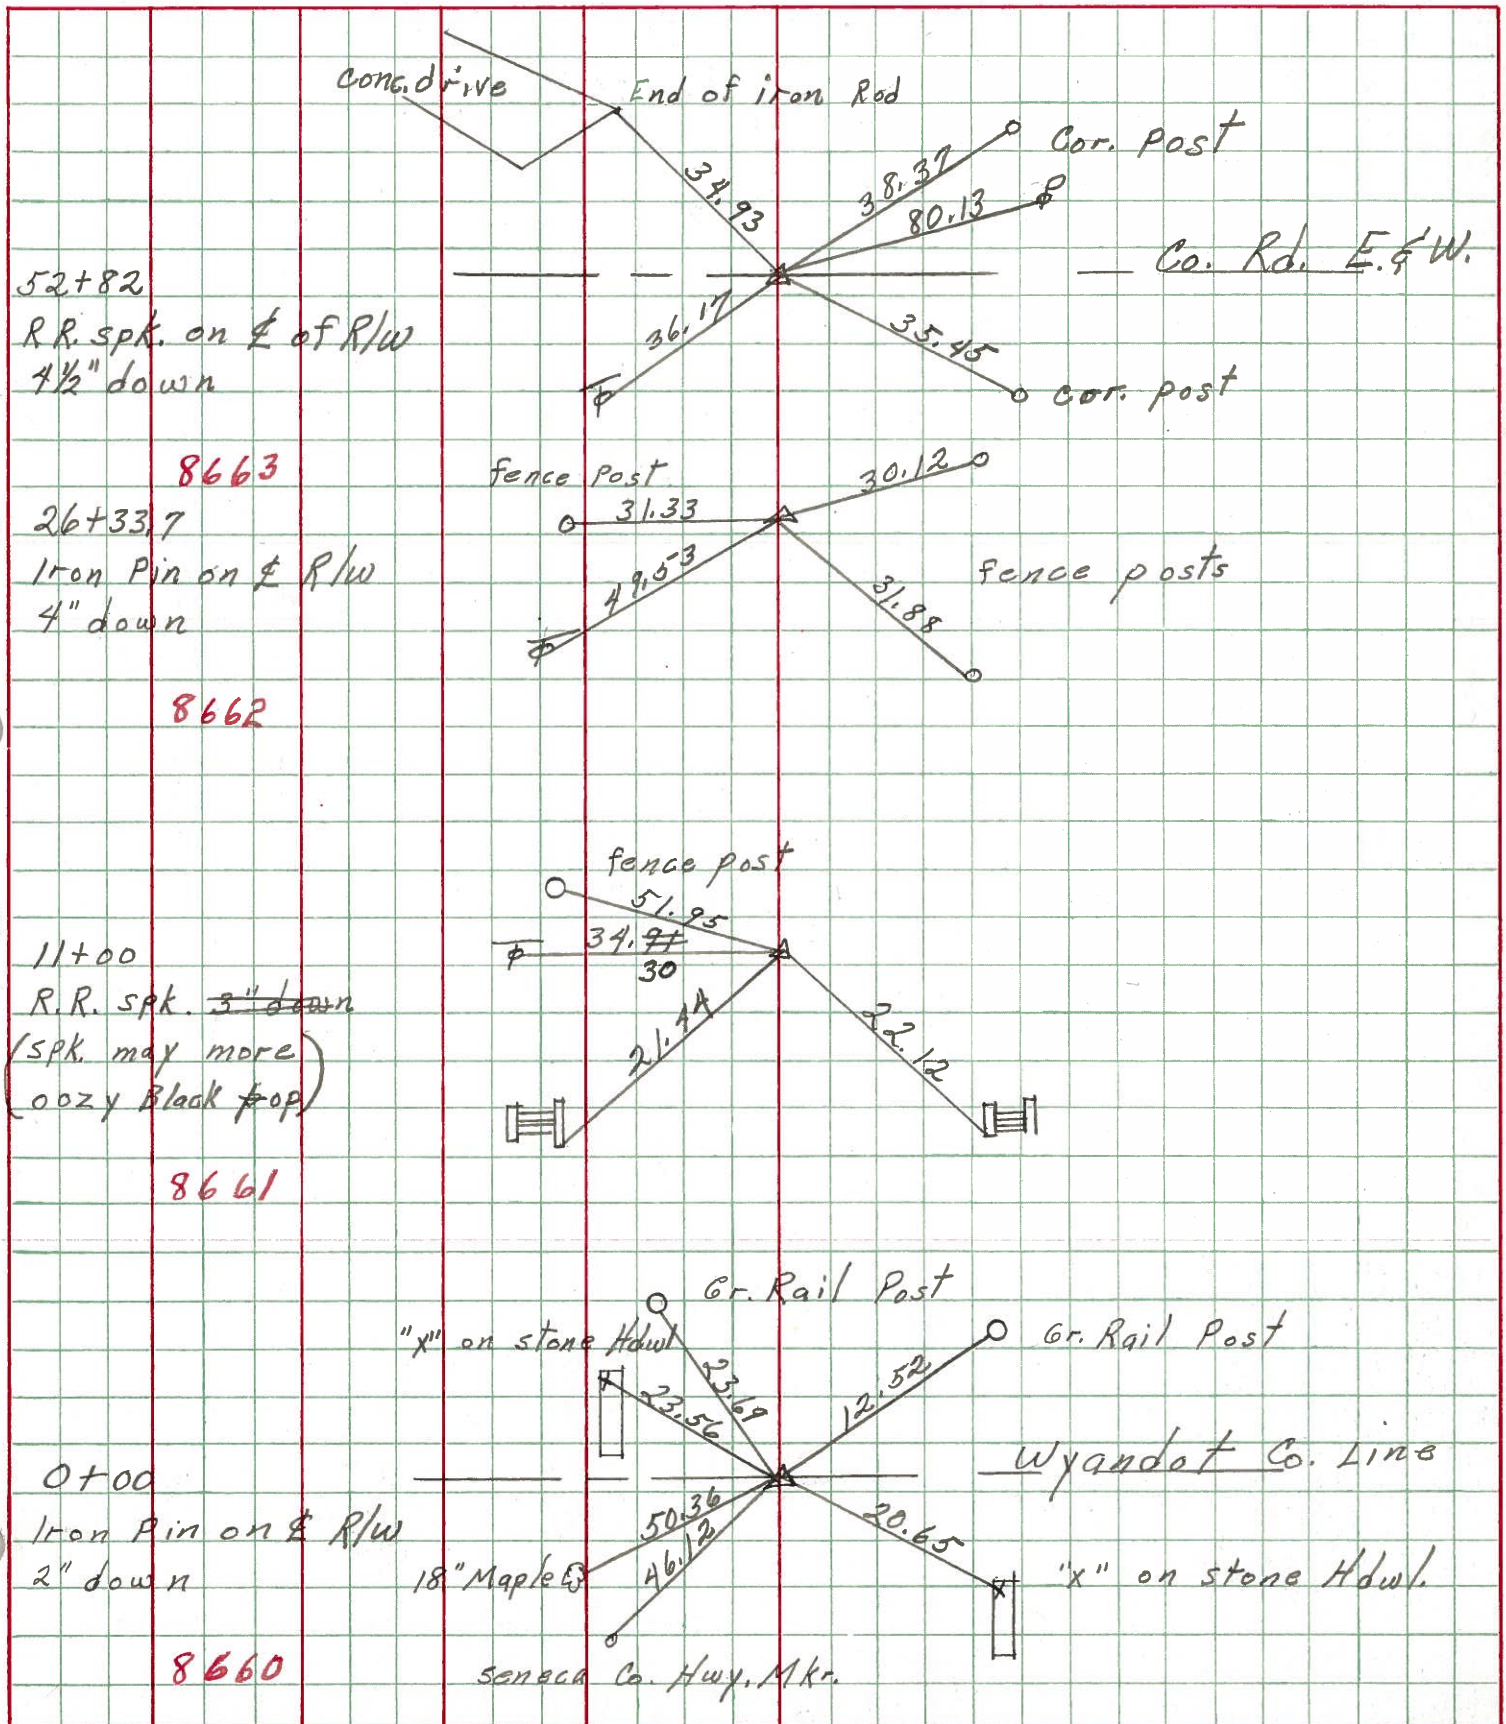 Conc. drive
End of iron Rod
Cor. Post
34.93
38.37
80.13
Co. Rd. E. & W.
52+82
R.R. spk. on ℄ of R/W
4½" down
36.17
35.45
cor. post
8663
fence Post
30.12
31.33
26+33.7
Iron Pin on ℄ R/W
4" down
49.53
31.88
fence posts
8662
fence post
51.95
34.91
30
11+00
R.R. spk. 3" down
(spk. may more
oozy Black top)
21.44
22.12
8661
Gr. Rail Post
"x" on stone Hdwl
Gr. Rail Post
23.69
23.56
12.52
Wyandot Co. Line
0+00
Iron Pin on ℄ R/W
2" down
50.36
46.12
20.65
18" Maple
"x" on stone Hdwl.
8660
Seneca Co. Hwy. Mkr.